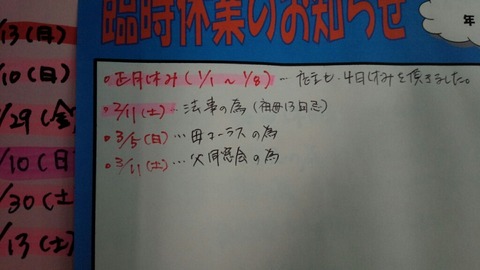 臨時休業のお知らせ
年
13(月)
10(日)
/29(金)
/10(日
/30(土
/13(土)
○正月休み(1/1~1/8)…店主も、4日休みを頂きました。
○2/11(土)…法事の為(祖母13回忌)
○3/5(日)…母コーラスの為
○3/11(土)…父同窓会の為